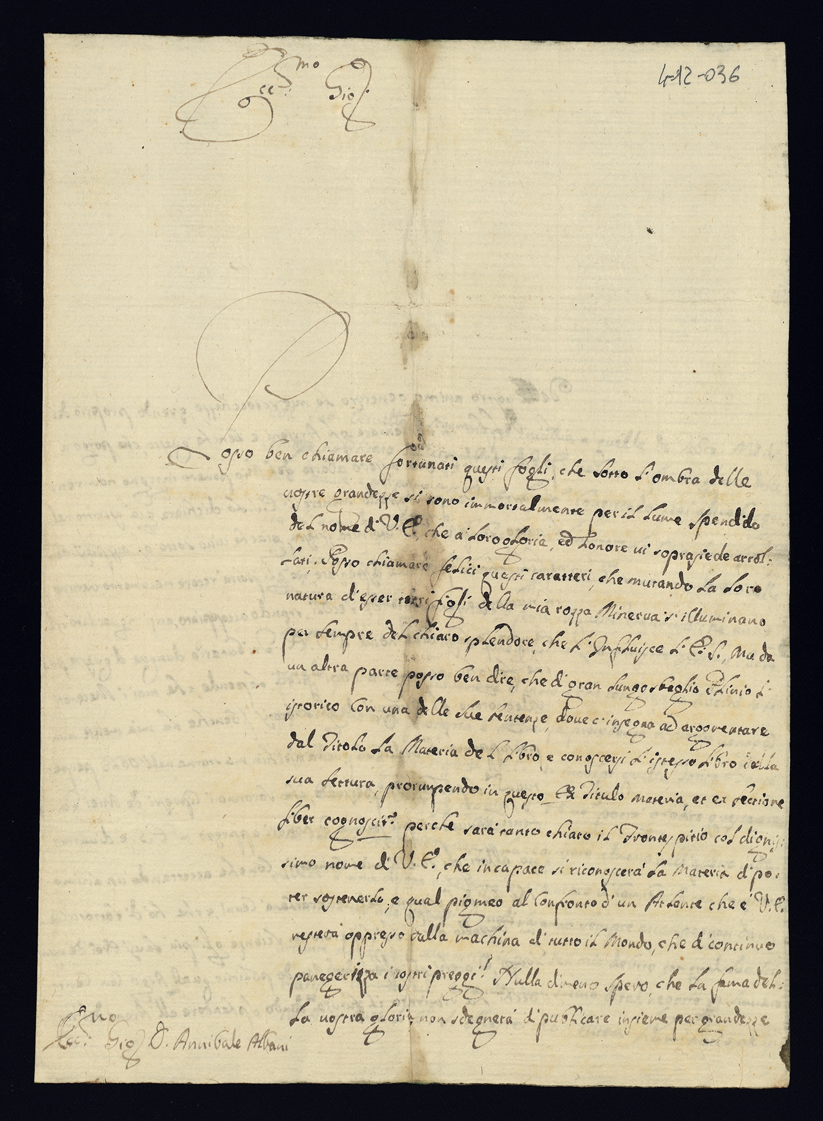 4-12-036
Ecc.mo Sig.
Posso ben chiamare fortunati questi fogli, che sotto l'ombra delle
vostre grandezze si sono immortalmente per il lume spendido
del nome di V. E., che a loro gloria, ed honore vi soprasiede arrol:
lati. Posso chiamare felici questi caratteri, che mutando la loro
natura d'esser figli della mia rozza Minerva s'illuminano
per sempre del chiaro splendore, che l'Influisce l'E. S., Ma da
un altra parte posso ben dire, che di gran lungo sbaglio Plinio l'
istorico con una delle sue sentenze, dove c'insegna ad argomentare
dal Titolo la Materia del libro, e conoscersi l'istesso libro dalla
sua lettura, prorumpendo in questo Ex Titulo materia, et ex lectione
liber cognoscit.r perche sarà tanto chiaro il Frontespitio col dignis:
simo nome di V. E., che incapace si riconoscerà la Materia di po:
ter sostenerlo, e qual pigmeo al confronto d'un Atlante che è V. E.
resterà oppresso dalla machina di tutto il Mondo, che di continuo
panegerizza i vostri preggi. Nulla dimeno spero, che la fama del:
la vostra gloria non sdegnerà di publicare insieme per grandezze
Ecc.mo Sig. D. Annibale Albani